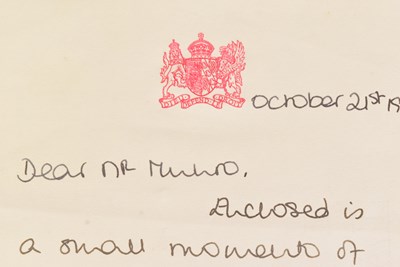 October 21st 19
Dear Mr Munro,
Enclosed is
a small momento of